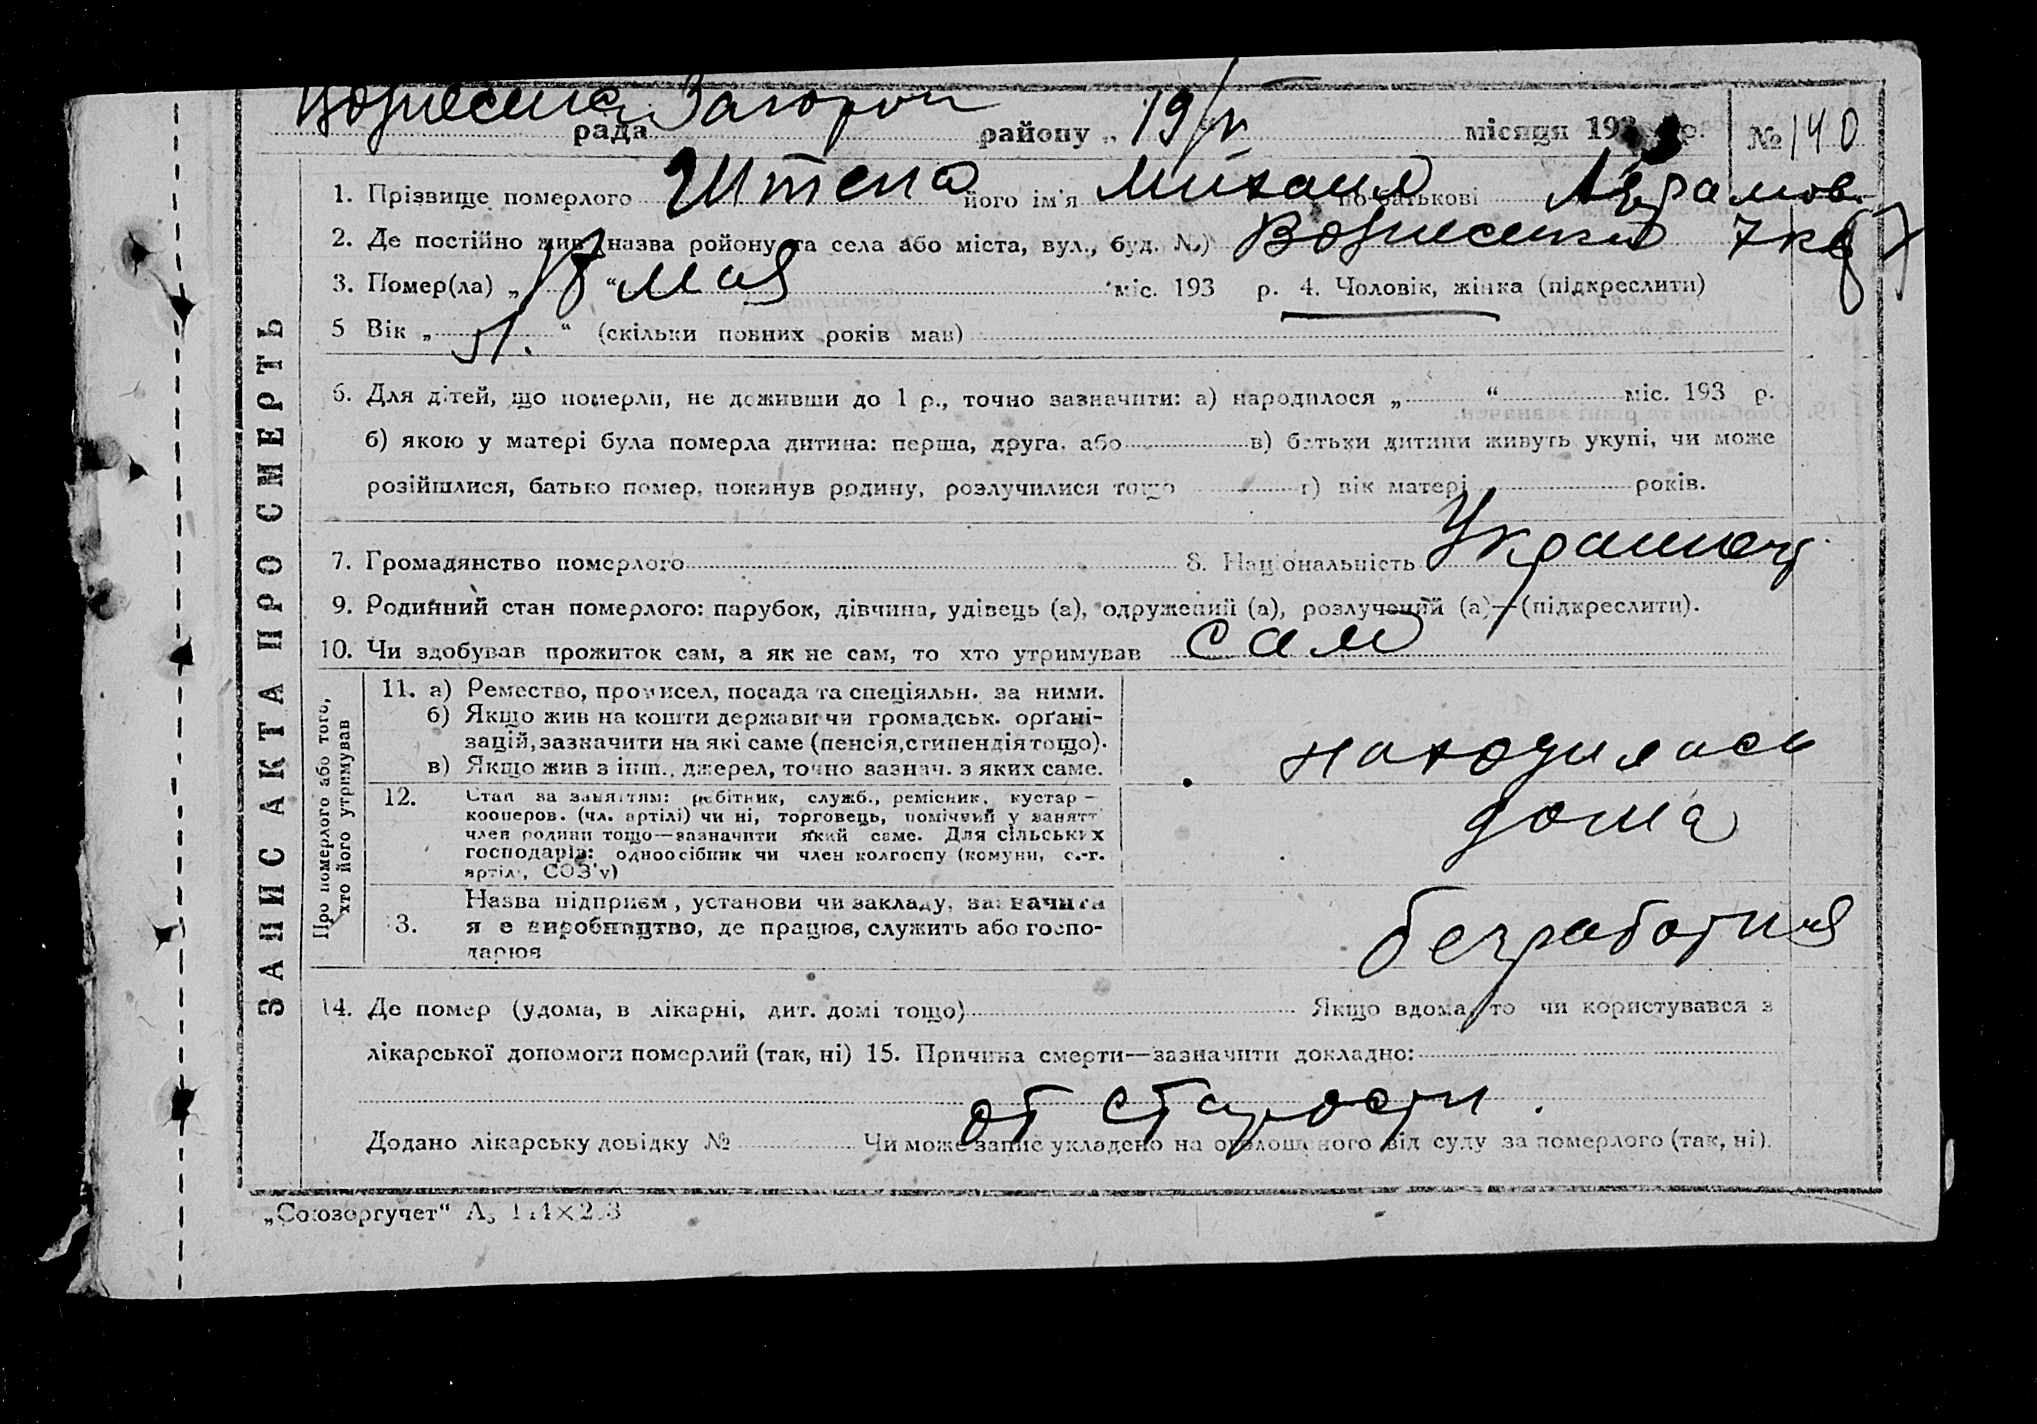 Вознесенка Запорож
рада району „ 19/V місяця 193 3 р. № 140
1. Прізвище померлого Штепа його ім'я Михаил по батькові Аврамов.
2. Де постійно жив (назва ройону та села або міста, вул., буд. №) Вознесенка 7 кв
3. Помер(ла) „ 17 “ мая міс. 193 р. 4. Чоловік, жінка (підкреслити)
5 Вік „ 51. “ (скільки повних років мав)
6. Для дітей, що померли, не доживши до 1 р., точно зазначити: а) народилося „ “ міс. 193 р.
б) якою у матері була померла дитина: перша, друга, або в) батьки дитини живуть укупі, чи може
розійшлися, батько помер, покинув родину, розлучилися тощо г) вік матері років.
7. Громадянство померлого 8. Національність Украинец
9. Родинний стан померлого: парубок, дівчина, удівець (а), одружений (а), розлучений (а)—(підкреслити).
10. Чи здобував прожиток сам, а як не сам, то хто утримував сам
ЗАПИС АКТА ПРО СМЕРТЬ
Про померлого або того, хто його утримував
11. а) Ремество, промисел, посада та спеціяльн. за ними.
б) Якщо жив на кошти держави чи громадськ. орґані-
зацій, зазначити на які саме (пенсія, стипендія тощо).
в) Якщо жив з інш., джерел, точно зазнач. з яких саме.
находилась
дома
12. Стан за заняттям: робітник, служб., ремісник, кустар –
кооперов. (чл. артілі) чи ні, торговець, помічний у занятт
член родини тощо—зазначити який саме. Для сільських
господарів: одноосібник чи член колгоспу (комуни, с.-г.
артілі, СОЗ'у)
Назва підприєм, установи чи закладу, зазначити
3. я е виробництво, де працює, служить або госпо-
дарює
безработная
14. Де помер (удома, в лікарні, дит. домі тощо) Якщо вдома, то чи користувався з
лікарської допомоги померлий (так, ні) 15. Причина смерти—зазначити докладно:
от старости.
Додано лікарську довідку № Чи може запис укладено на оголошеного від суду за померлого (так, ні).
„Союзоргучет“